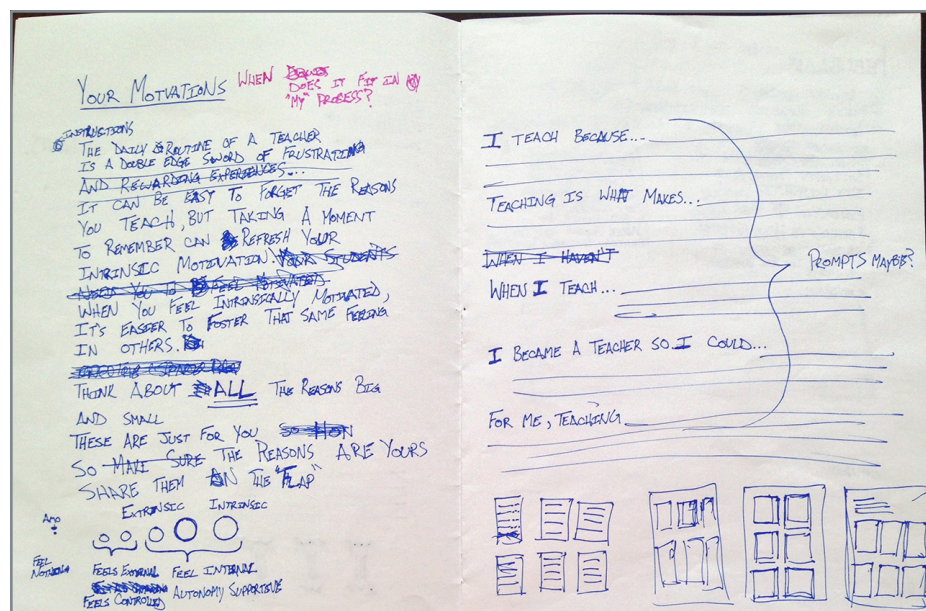 YOUR MOTVATIONS
WHEN DOES IT FIT IN
"MY" PROCESS?
INSTRUCTIONS
THE DAILY ROUTINE OF A TEACHER
IS A DOUBLE EDGE SWORD OF FRUSTRATING
AND REWARDING EXPERIENCES...
IT CAN BE EASY TO FORGET THE REASONS
YOU TEACH, BUT TAKING A MOMENT
TO REMEMBER CAN REFRESH YOUR
INTRINSIC MOTIVATION YOUR STUDENTS
NEED YOU TO FEEL MOTIVATED
WHEN YOU FEEL INTRINSICALLY MOTIVATED,
IT'S EASIER TO FOSTER THAT SAME FEELING
IN OTHERS.
THINK ABOUT ALL THE REASONS BIG
AND SMALL
THESE ARE JUST FOR YOU
SO MAKE SURE THE REASONS ARE YOURS
SHARE THEM ON THE "FLAP"
EXTRINSIC INTRINSIC
FEEL
FEELS EXTERNAL FEEL INTERNAL
FEELS CONTROLLED AUTONOMY SUPPORTIVE
I TEACH BECAUSE...
TEACHING IS WHAT MAKES...
WHEN I HAVEN'T
WHEN I TEACH...
I BECAME A TEACHER SO I COULD...
FOR ME, TEACHING
PROMPTS MAYBE?